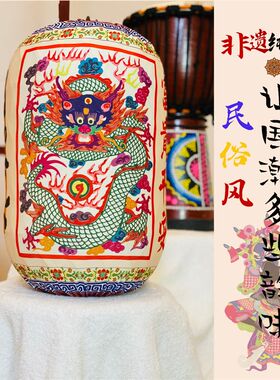 非遗
民俗风
让国潮多些韵味